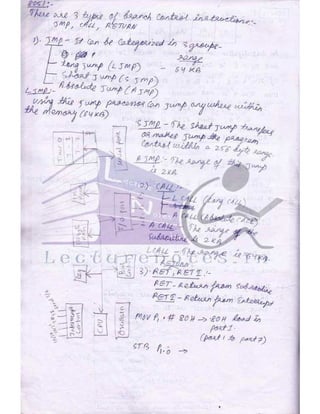 There are 3 types of Branch Control instructions:-
JMP, CALL, RETURN
1). JMP - It can be Categorized in 3 groups.
range
Long Jump (LJMP) - 64 KB
Short Jump (SJMP)
Absolute Jump (AJMP)
LJMP:-
using this jump processor can jump anywhere within
the memory (64KB)
SJMP - The Short jump transfers
or makes jump the program
Control within a 256 byte range.
AJMP:- The range of this jump
is 2KB.
2) CALL:-
LCALL (Long CALL)
ACALL (Absolute CALL)
ACALL - The range of the
Subroutine is 2KB
LCALL - The range is 64KB.
3) RET, RETI:-
RET - Return from Subroutine
RETI - Return from Interrupt
MOV P1, # 80H → 80H load in
port 1.
(port 1 to port 2)
Timer 0
Serial port
I/O port
Bus
Control
Interrupt
Control
CPU
Oscillator
LectureNotes